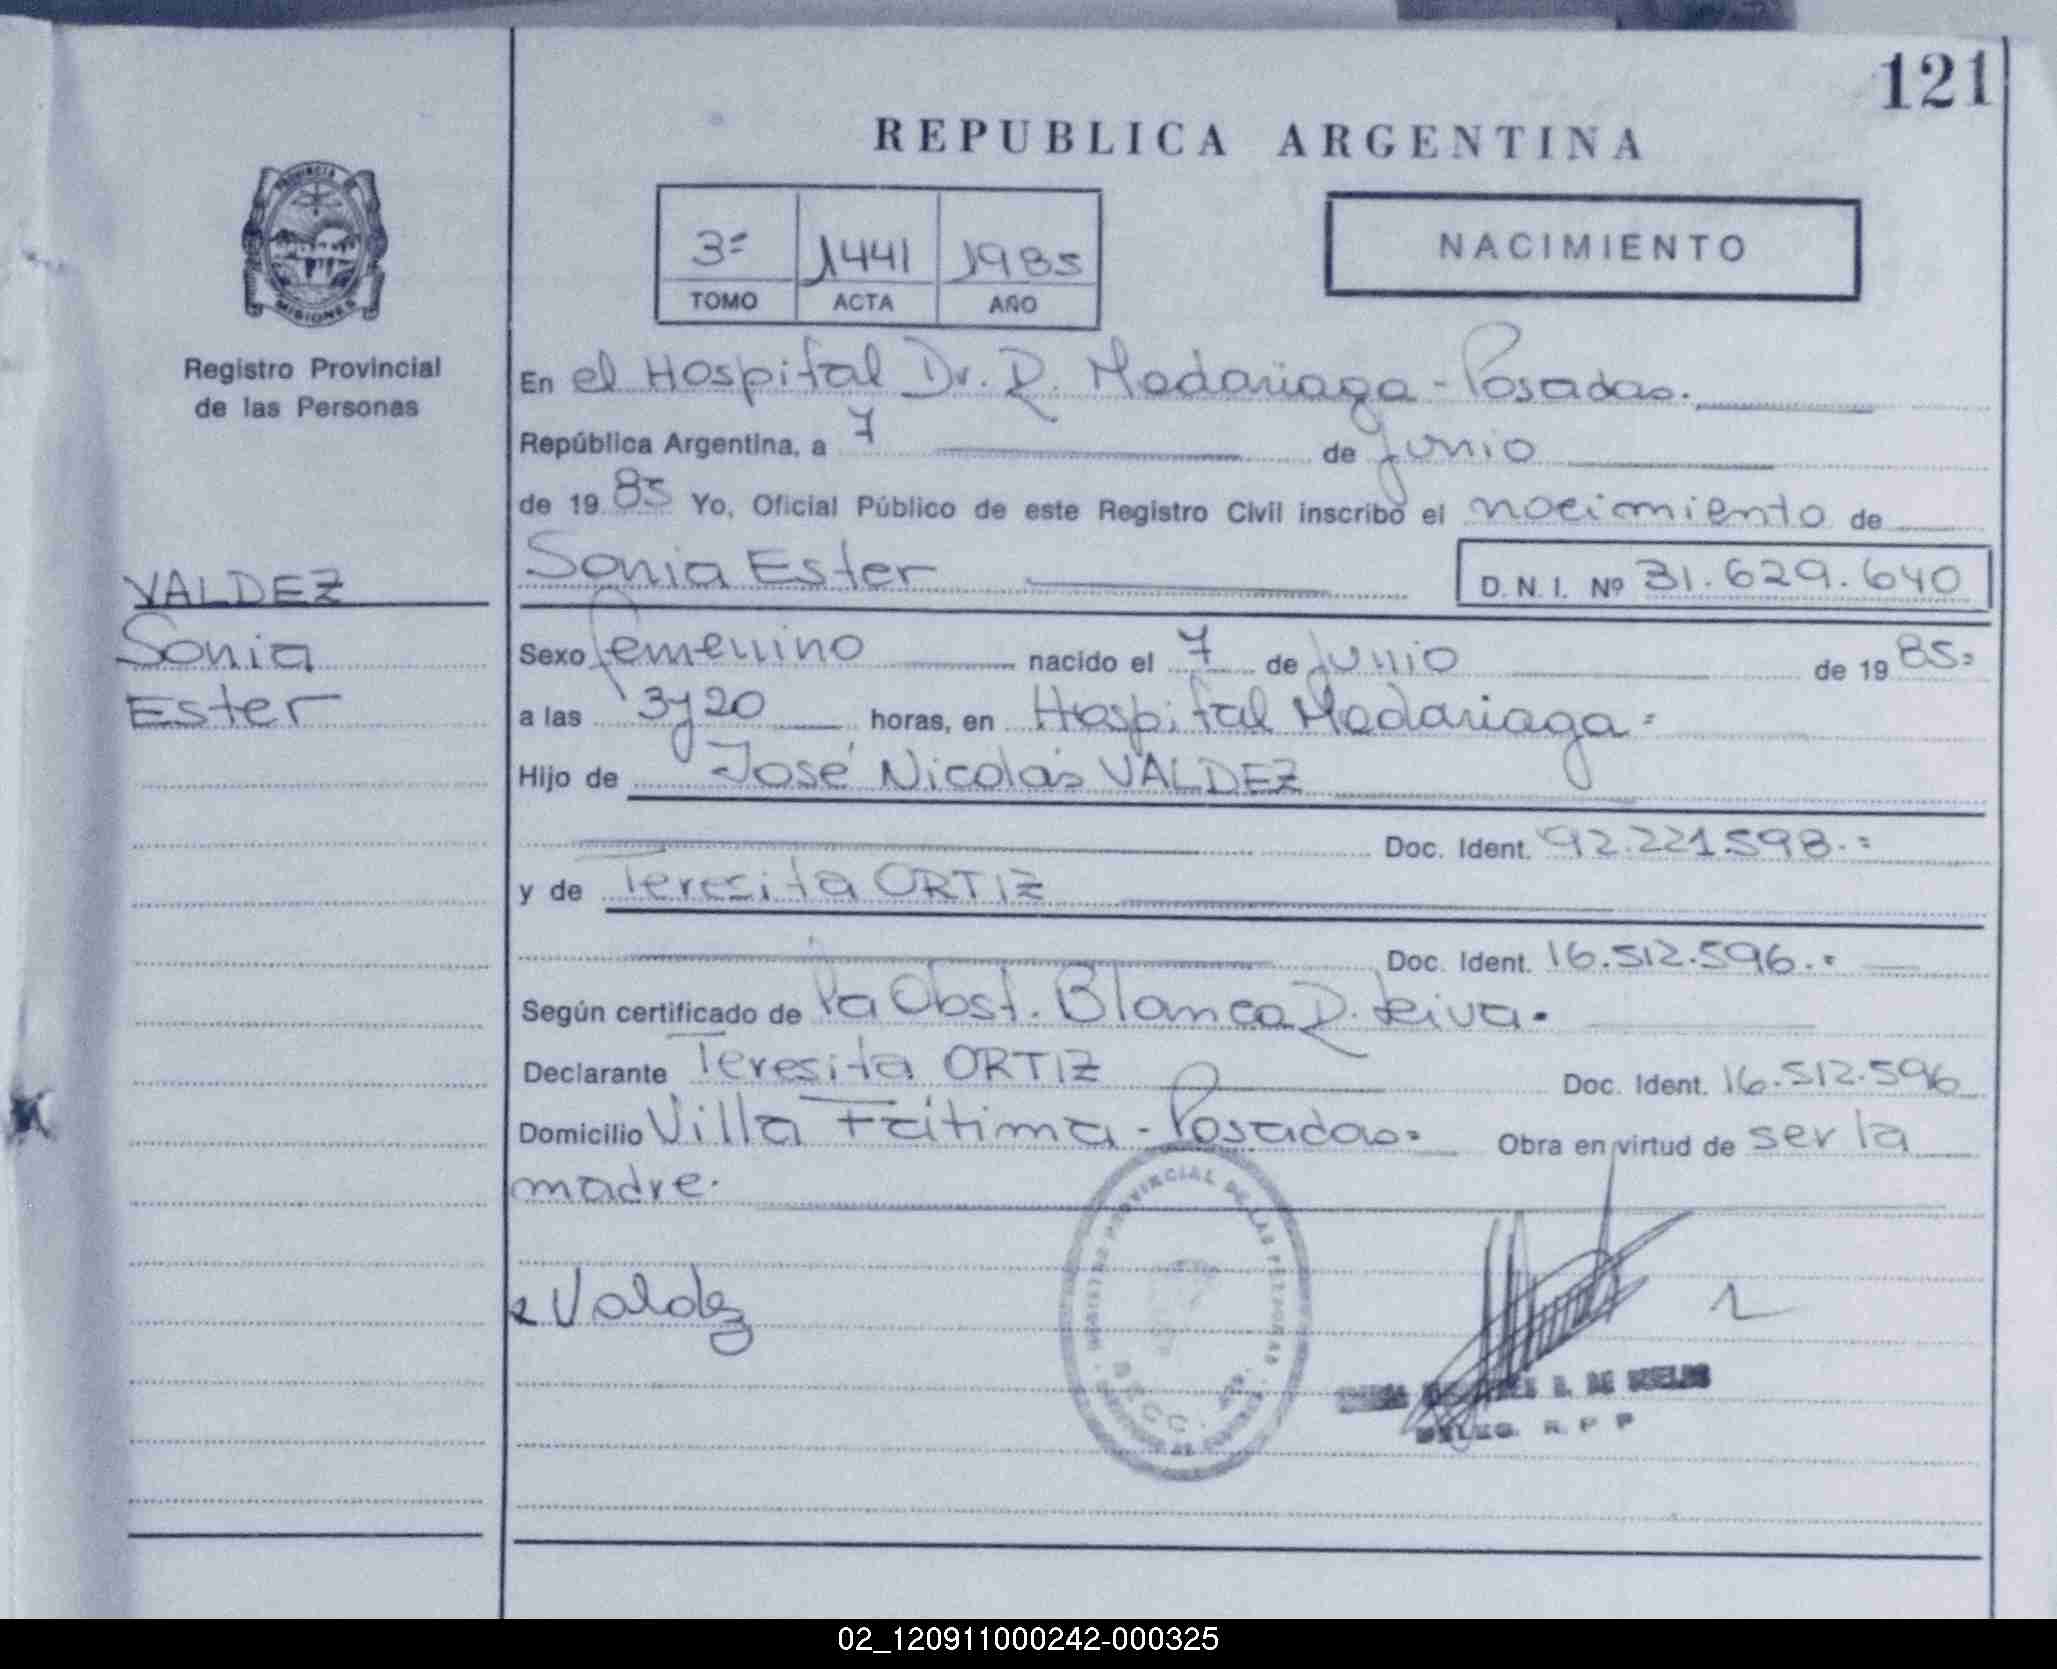 121
REPUBLICA ARGENTINA
PROVINCIA DE
MISIONES
Registro Provincial
de las Personas
3º 1441 1985
TOMO ACTA AÑO
NACIMIENTO
En el Hospital Dr. R. Madariaga - Posadas.
República Argentina, a 7 de junio
de 1985 Yo, Oficial Público de este Registro Civil inscribo el nacimiento de
Sonia Ester D. N. I. Nº 31.629.640
VALDEZ
Sonia
Ester
Sexo femenino nacido el 7 de junio de 1985=
a las 3y20 horas, en Hospital Madariaga=
Hijo de José Nicolás VALDEZ
Doc. Ident. 92.221.598.=
y de Teresita ORTIZ
Doc. Ident. 16.512.596.=
Según certificado de la Obst. Blanca R. Leiva.
Declarante Teresita ORTIZ Doc. Ident. 16.512.596
Domicilio Villa Fátima - Posadas= Obra en virtud de ser la
madre.
REGISTRO PROVINCIAL DE LAS PERSONAS
Valdez
DELEG. R. P. P
02_120911000242-000325